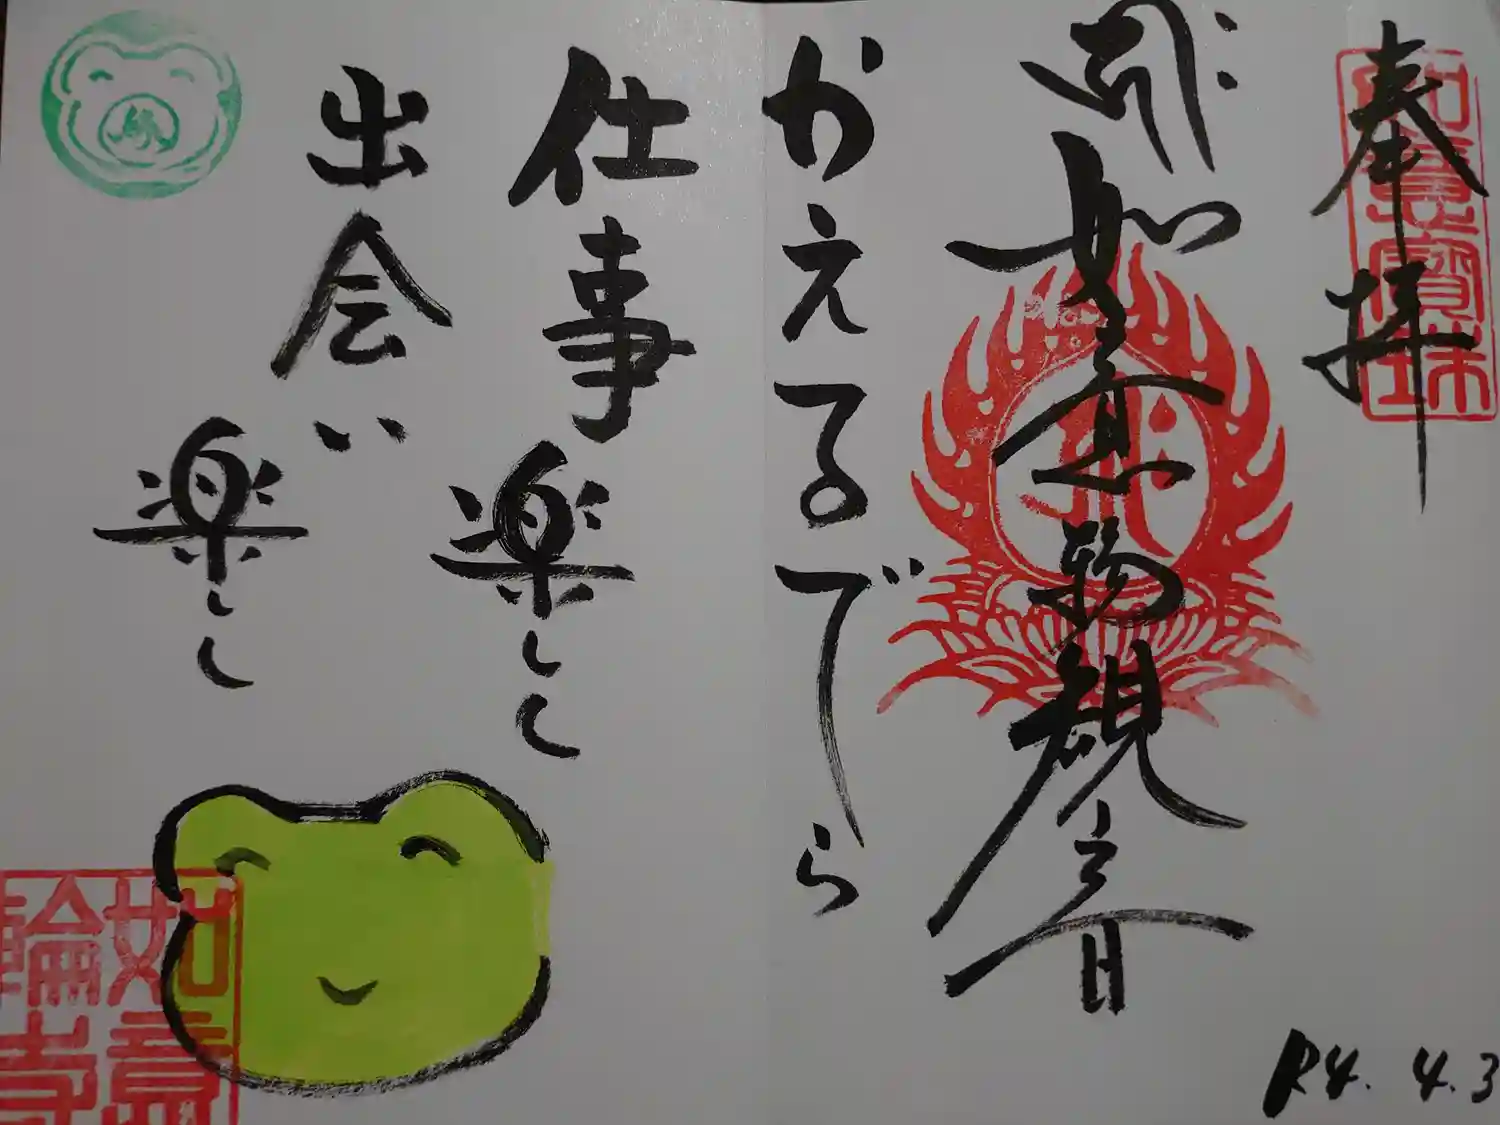 奉拝
如意宝珠
如意輪観音
かえるでら
仕事楽しく
出会い楽し
如意輪寺
R4.4.3